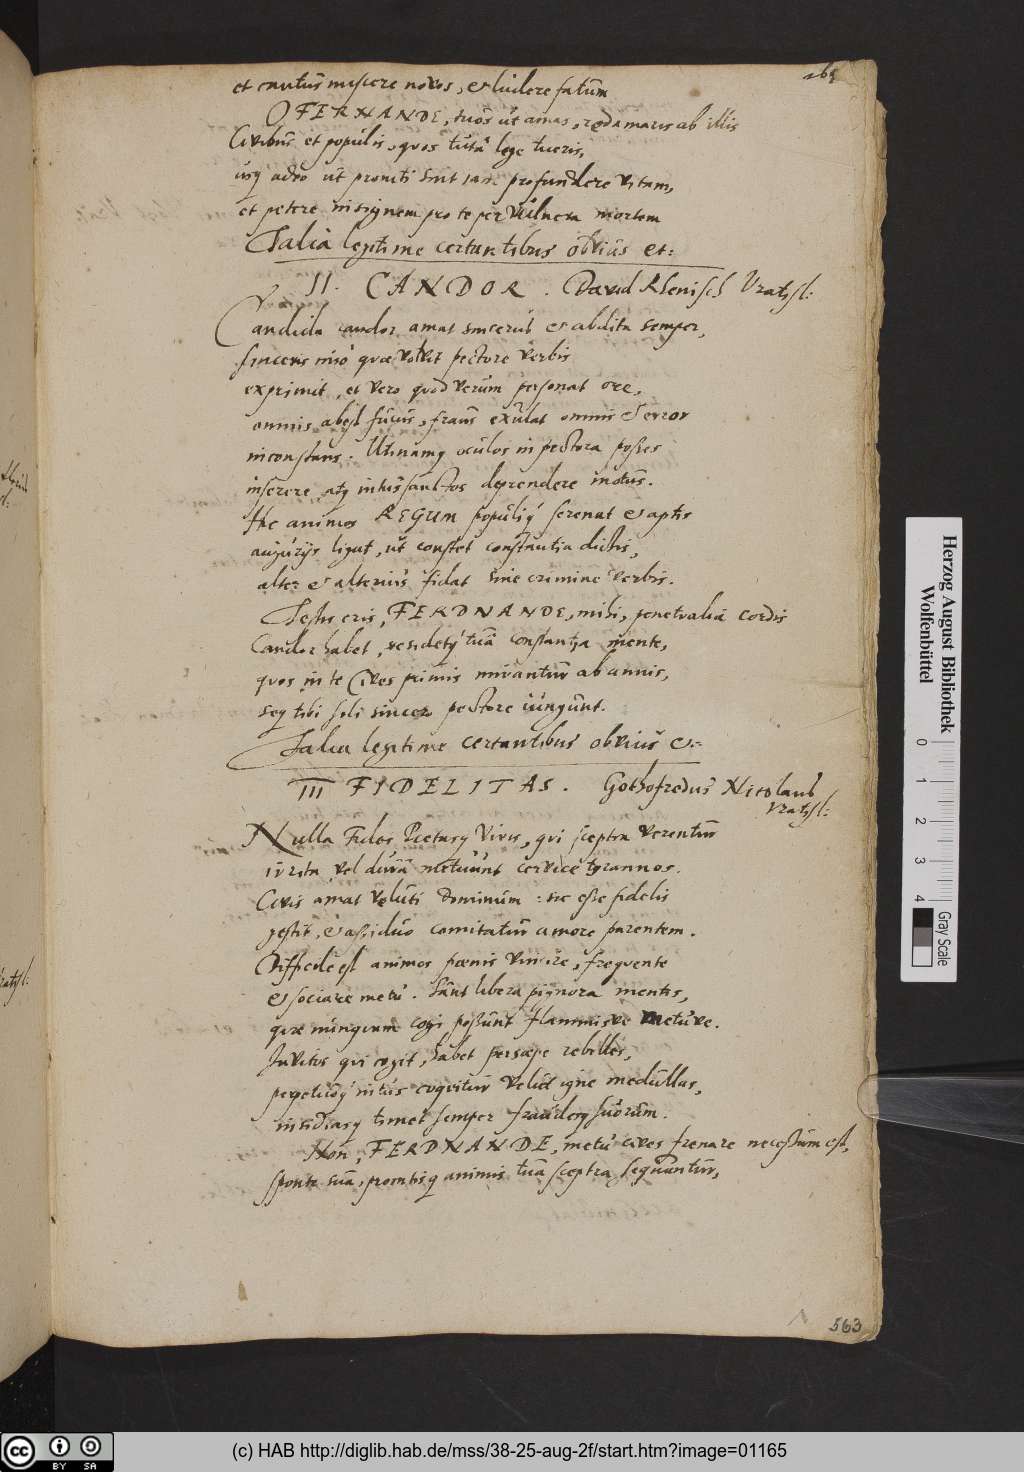 265
et cautus miscere novos, & ludere fatum
O FERNANDE, tuos ut amas, redamaris ab illis
Civibus et populis, quos tuta lege tueris,
usq adeo ut promti sint iam profundere vitam,
et petere insignem pro te per vulnera mortem
Talia legitime certantibus obvius et:
II. CANDOR. David Rhenisch Vratisl:
Candida candor amat sincerus & abdita semper,
sinceris nisi quae volvit pectore verbis
exprimit, et vero quod verum personat ore,
omnis abest fucus, fraus exulat omnis & error
inconstans. Utinamq oculos in pectora posses
inserere, atq intus sanctos deprendere motus.
Hic animos REGUM populiq serenat & aptis
augurijs ligat, ut constet constantia dictis,
alter & alterius fidat sine crimine verbis.
Testis eris, FERDNANDE, mihi, penetralia cordis
Candor habet, residetq tua constantia mente,
quos in te Cives primis mirantur ab annis,
seq tibi soli sincero pectore iungunt.
Talia legitime certantibus obvius &:
III FIDELITAS. Gothofredus Nicolaus
Vratisl:
Nulla Fides Pietasq Viris, qui sceptra verentur
irrita vel dura metuunt cervice tyrannos.
Civis amat veluti Dominum: sic esse fidelis
gestit, & assiduo comitatur amore parentem.
Difficile est animos poenis vincire, frequente
& sociare metu. Sunt libera pignora mentis,
quae nunquam cogi possunt flammisve metuve.
Invitos qui cogit, habet persaepe rebelles,
perpetuoq intus coquitur velut igne medullas,
insidiasq timet semper fraudesq suorum.
Non, FERDNANDE, metu cives frenare necessum est,
sponte sua, promtisq animis tua sceptra sequuntur,
563
Herzog August Bibliothek
Wolfenbüttel
0 1 2 3 4
Gray Scale
CC BY SA
(c) HAB http://diglib.hab.de/mss/38-25-aug-2f/start.htm?image=01165